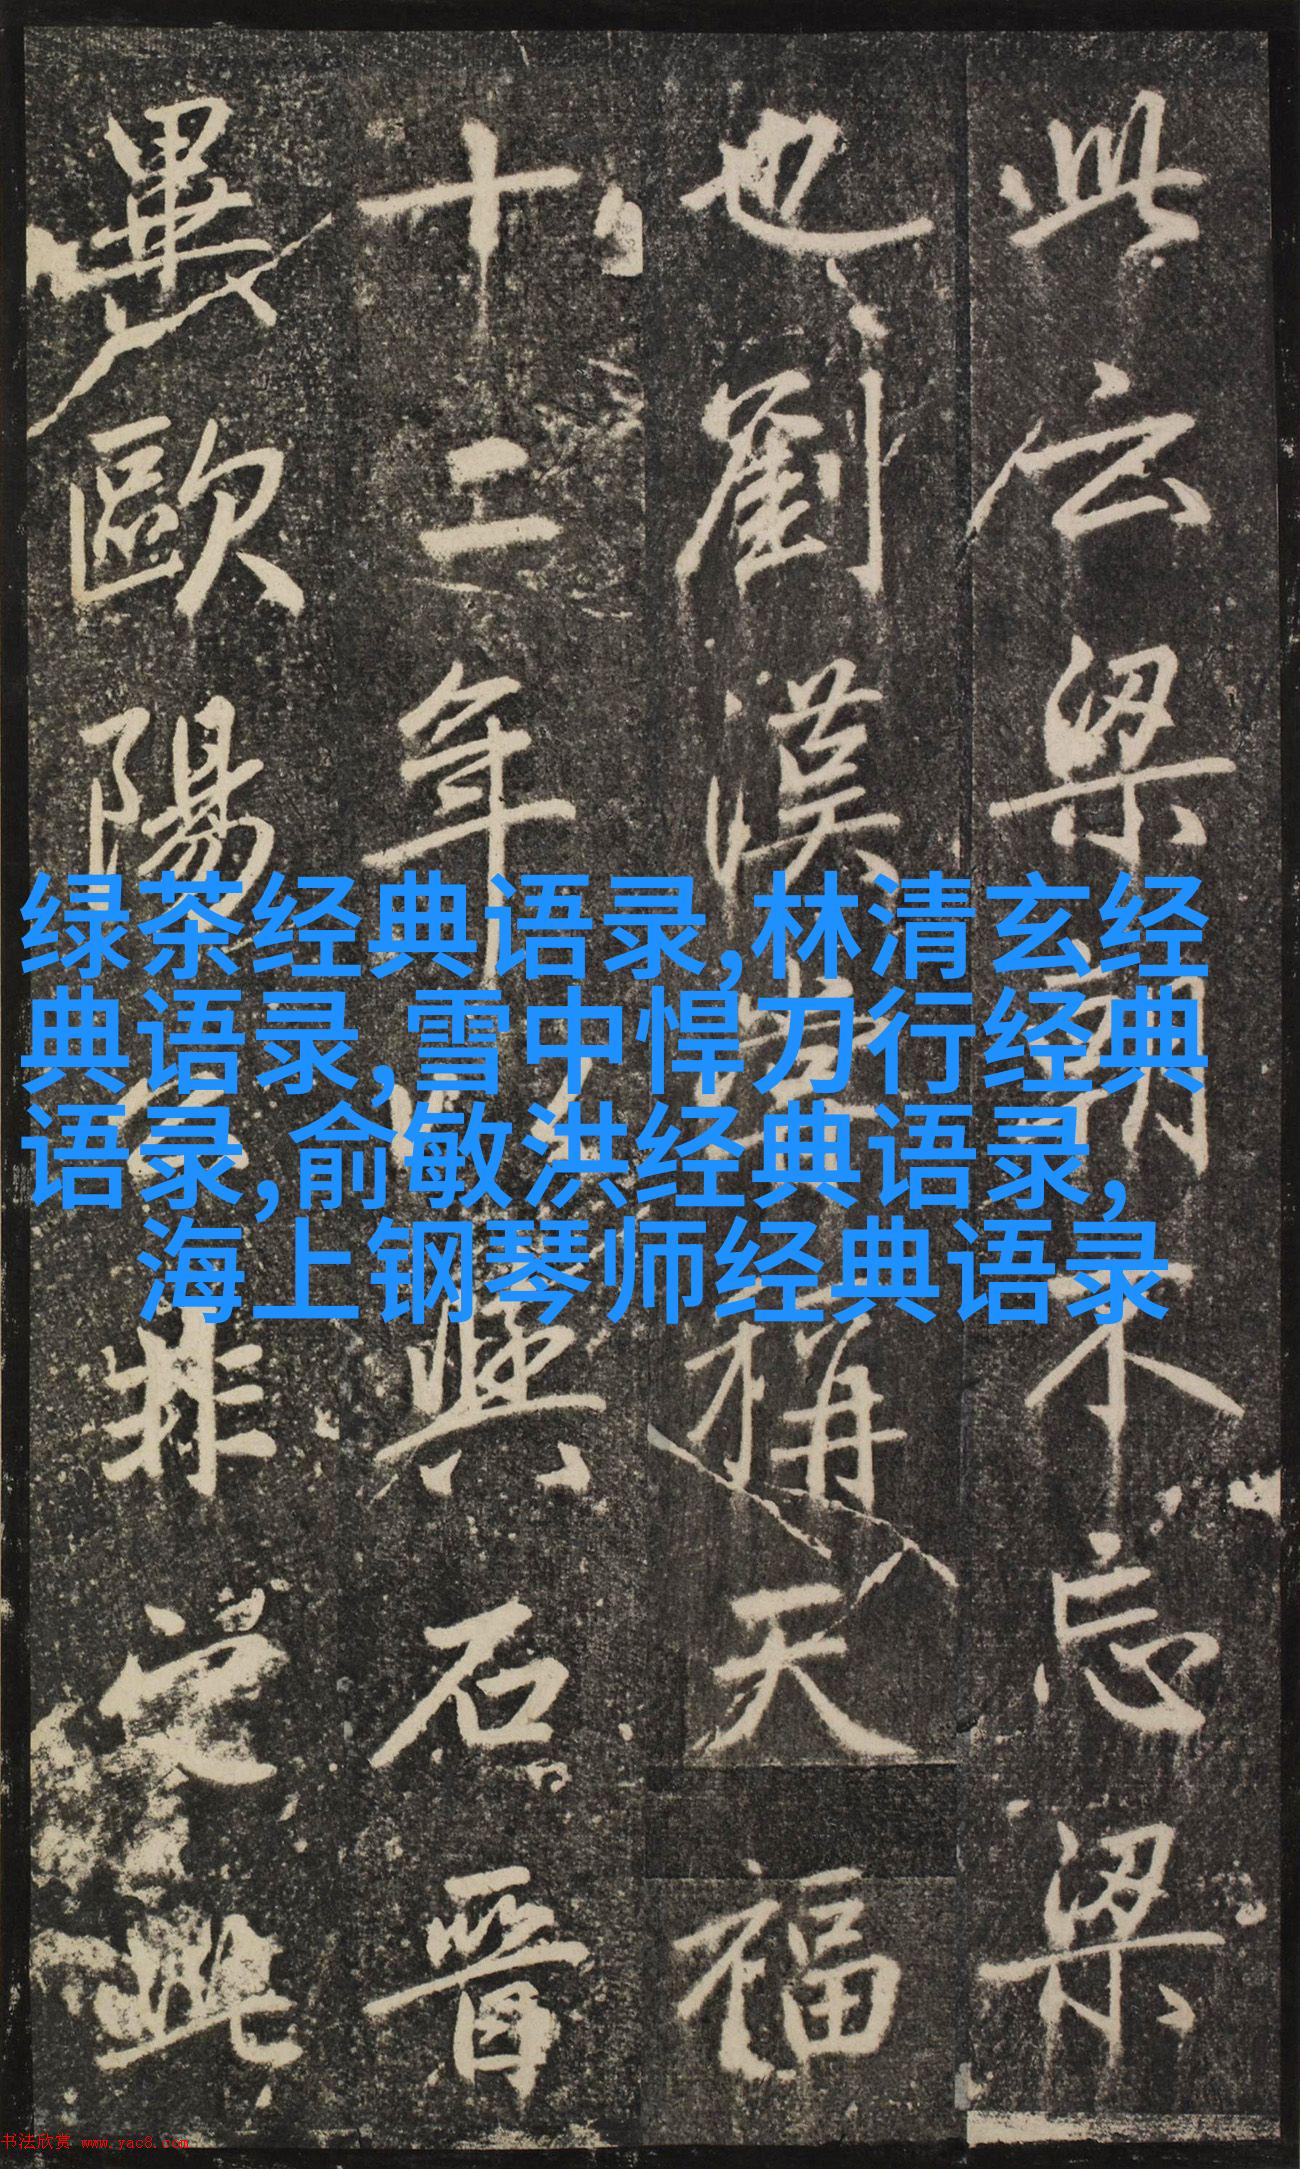 此云梁朝不忘梁
也劉漢稱天福
十二年與石晉
畢歐陽公非此
绿茶经典语录,林清玄经
典语录,雪中悍刀行经典
语录,俞敏洪经典语录,
海上钢琴师经典语录
书法欣赏 www.yac8.com